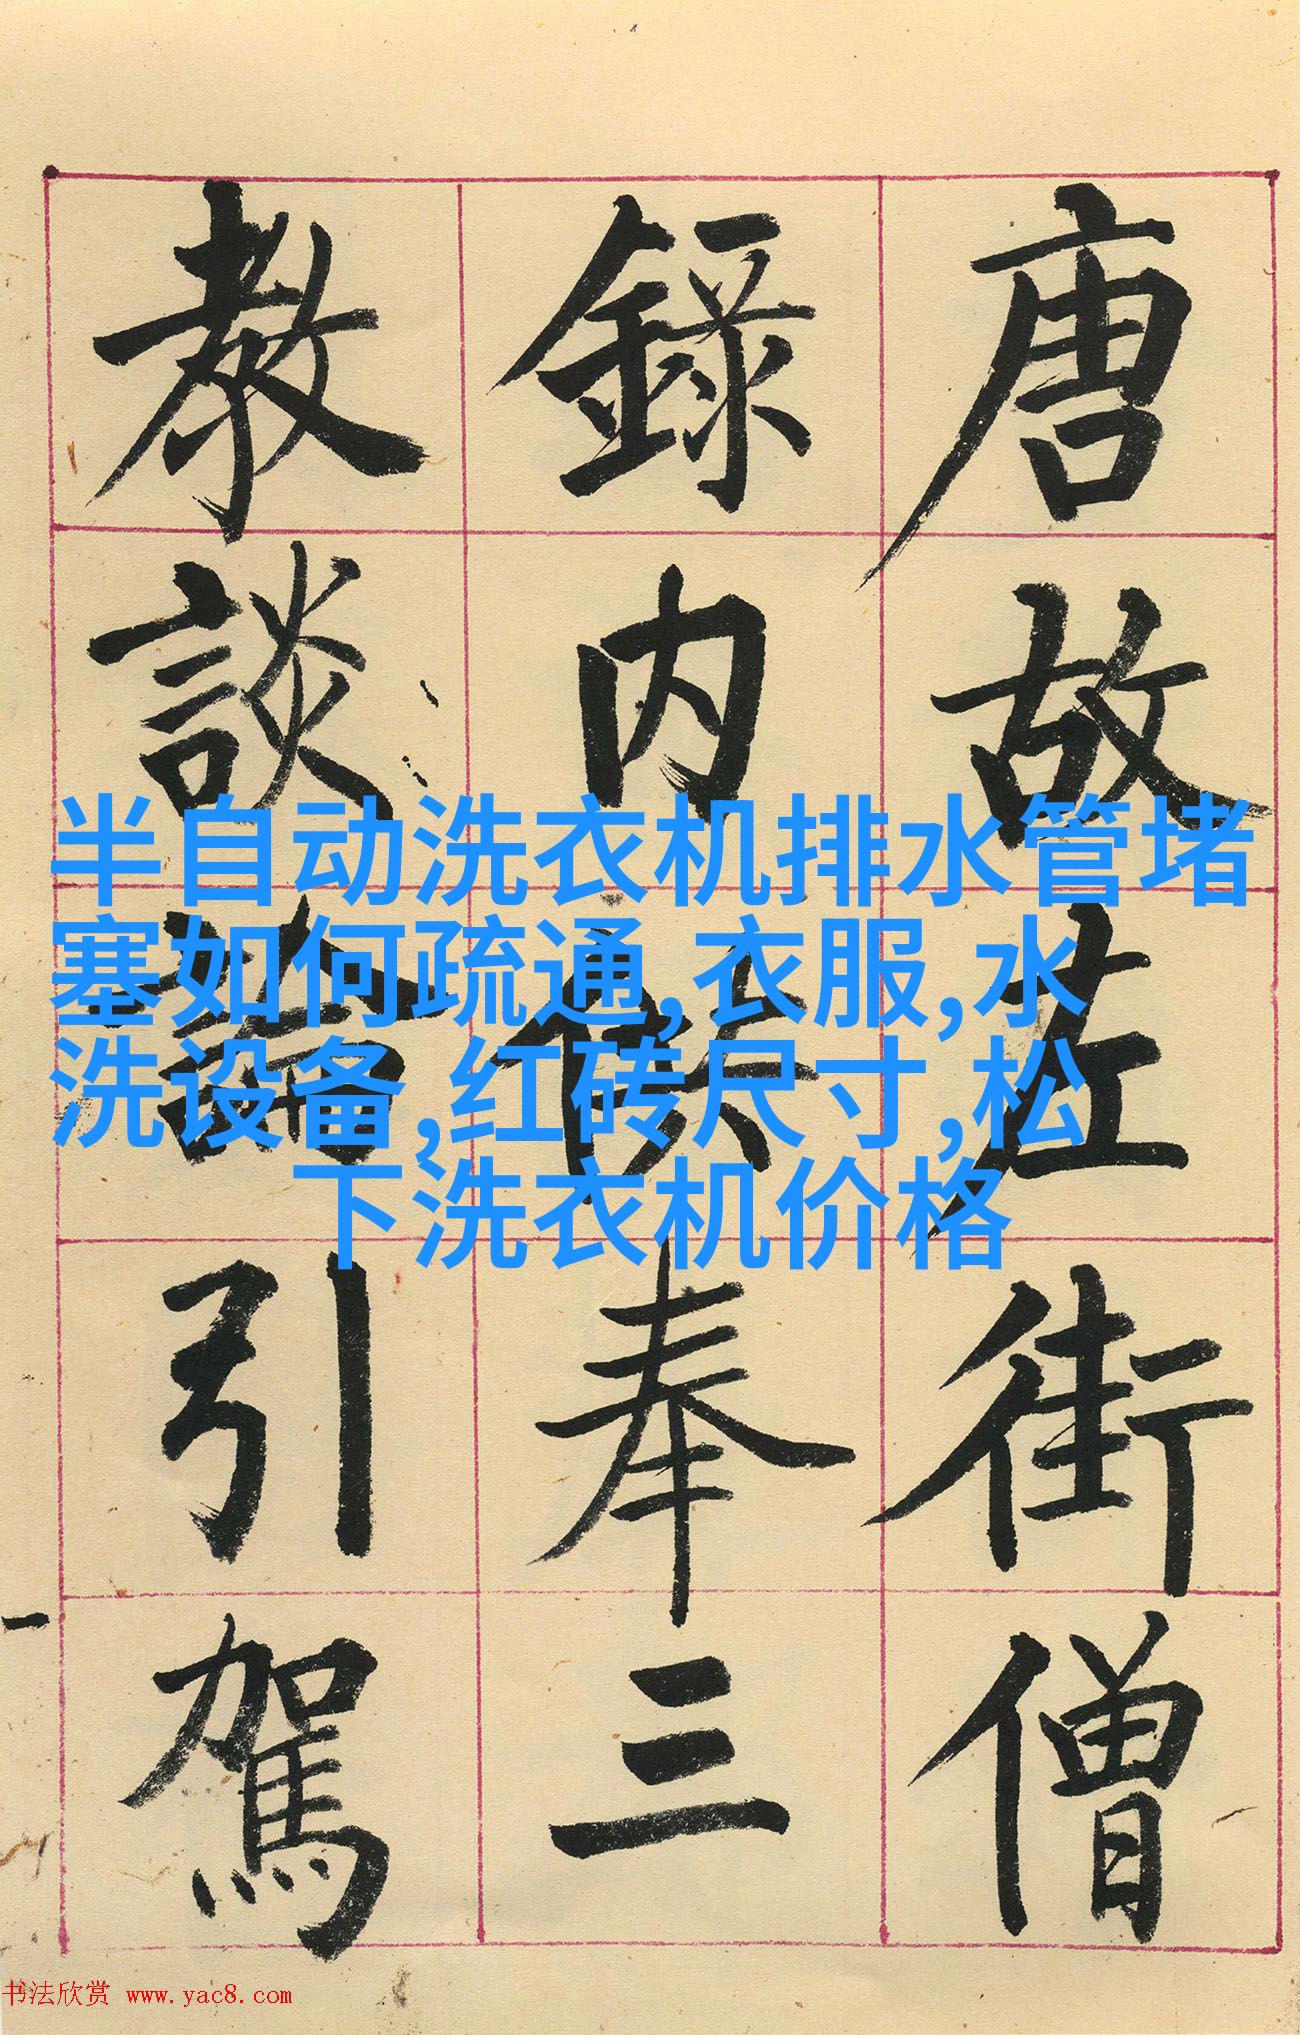 唐故左街僧
錄內供奉三
教談論引駕
半自动洗衣机排水管堵
塞如何疏通,衣服,水
洗设备,红砖尺寸,松
下洗衣机价格
书法欣赏 www.yac8.com